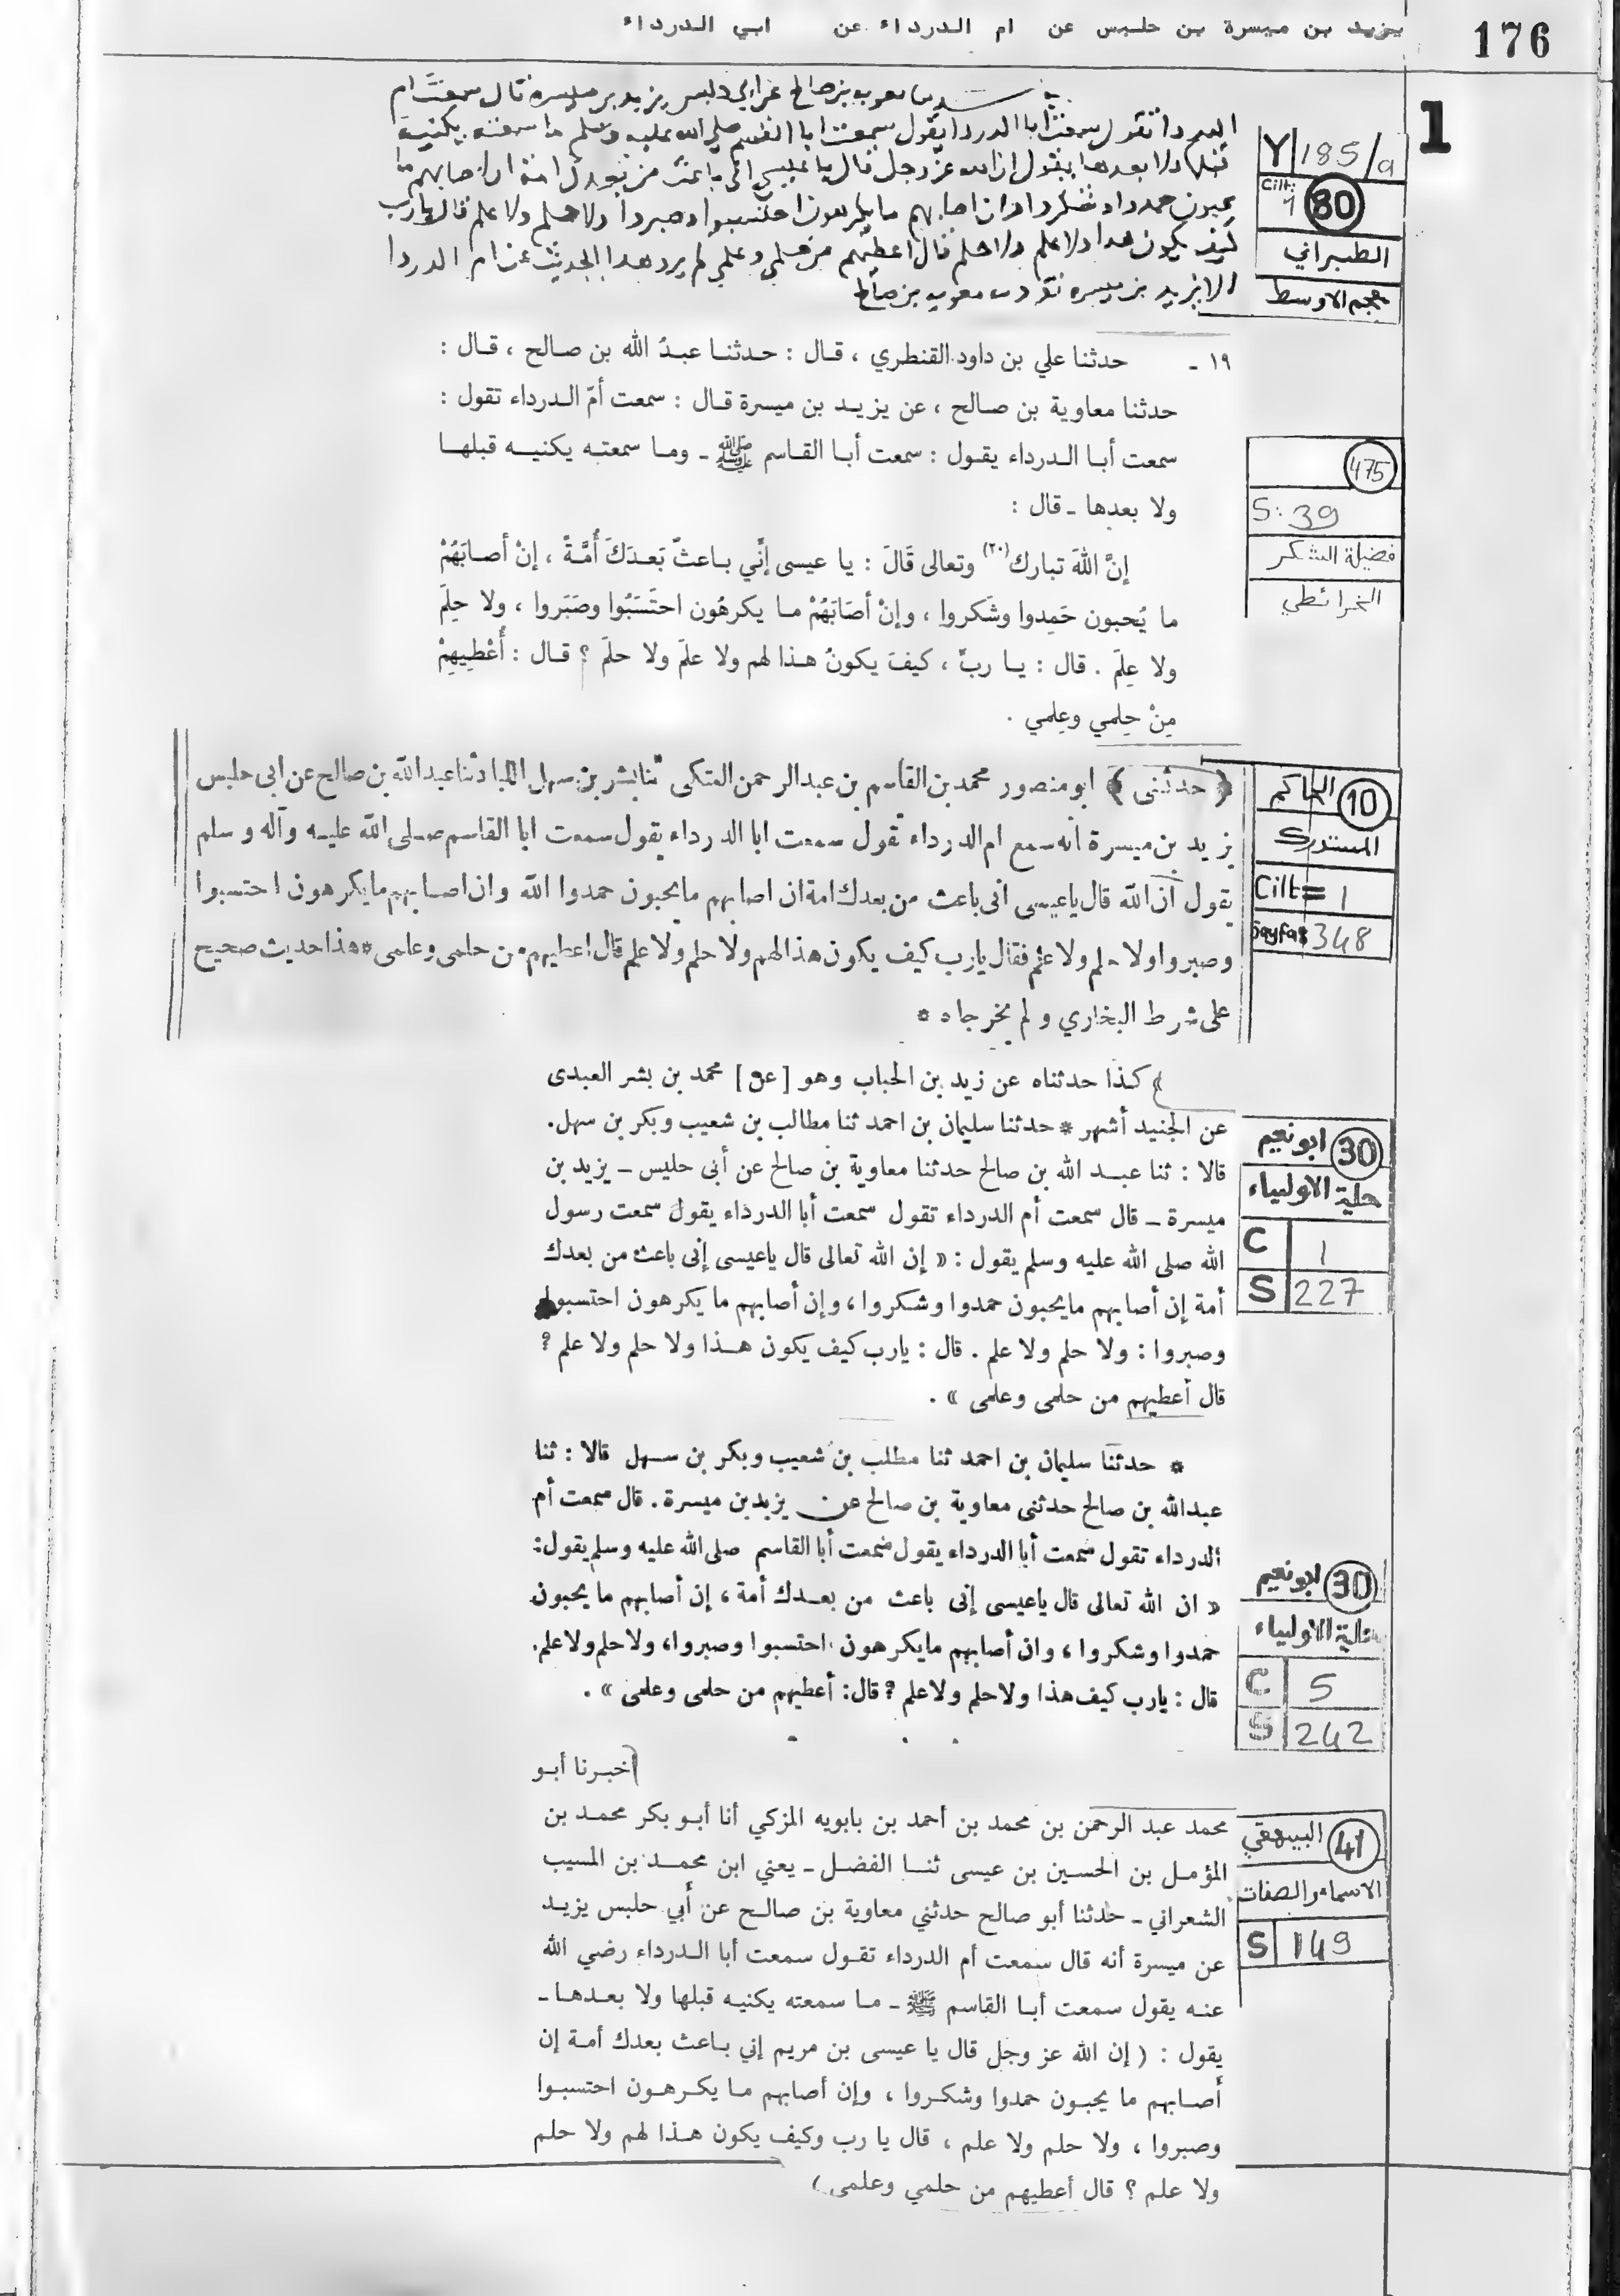 176
يزيد بن ميسرة بن حلبس عن ام الدرداء عن ابي الدرداء
1
Y 185/a
Cilt: 1
80
الطبراني
معجم الاوسط
معويه بن صالح عن ابي حلبس يزيد بن ميسره قال سمعت ام
الدردا تقول سمعت ابا الدردا يقول سمعت ابا القسم صلى الله عليه وسلم ما سمعته يكنيه
قبلها ولا بعدها يقول ان الله عز وجل قال يا عيسى اني باعث من بعدك امة ان اصابهم ما
يحبون حمدوا وشكروا وان اصابهم ما يكرهون احتسبوا وصبروا ولا حلم ولا علم قال يا رب
كيف يكون هذا ولا علم ولا حلم قال اعطيهم من حلمي وعلمي لم يرو هذا الحديث عن ام الدردا
الا يزيد بن ميسره تفرد به معويه بن صالح
475
S: 39
فضيلة الشكر
الخرائطي
١٩ ـ حدثنا علي بن داود القنطري ، قال : حدثنا عبدُ الله بن صالح ، قال :
حدثنا معاوية بن صالح ، عن يزيد بن ميسرة قال : سمعت أمّ الدرداء تقول :
سمعت أبا الدرداء يقول : سمعت أبا القاسم ﷺ ـ وما سمعته يكنيه قبلها
ولا بعدها ـ قال :
إنَّ اللهَ تبارك(٢٠) وتعالى قَالَ : يا عيسى إنّي باعثٌ بَعدَكَ أُمَّةً ، إنْ أصابَهُمْ
ما يُحبون حَمِدوا وشَكروا ، وإنْ أصَابَهُمْ ما يكرهُون احتَسَبُوا وصَبَروا ، ولا حِلمَ
ولا عِلمَ . قال : يا ربِّ ، كيفَ يكونُ هذا لهم ولا علمَ ولا حلمَ ؟ قال : أُعْطِيهِمْ
مِنْ حِلمي وعِلمي .
الحاكم 10
المستدرك
Cilt= 1
Sayfa: 348
﴿ حدثنى ﴾ ابو منصور محمد بن القاسم بن عبد الرحمن العتكى ثنا بشر بن سهل اللباد ثنا عبد الله بن صالح عن ابى حلبس
يزيد بن ميسرة انه سمع ام الدرداء تقول سمعت ابا الدرداء يقول سمعت ابا القاسم صلى الله عليه وآله وسلم
يقول ان الله قال يا عيسى انى باعث من بعدك امة ان اصابهم ما يحبون حمدوا الله وان اصابهم ما يكرهون احتسبوا
وصبروا ولا حلم ولا علم فقال يا رب كيف يكون هذا لهم ولا حلم ولا علم قال اعطيهم من حلمى وعلمى * هذا حديث صحيح
على شرط البخاري ولم يخرجاه *
ابو نعيم 30
حلية الاولياء
C 1
S 227
كذا حدثناه عن زيد بن الحباب وهو [عن] محمد بن بشر العبدى
عن الجنيد أشهر * حدثنا سليمان بن احمد ثنا مطالب بن شعيب وبكر بن سهل.
قالا : ثنا عبد الله بن صالح حدثنا معاوية بن صالح عن أبى حليس ــ يزيد بن
ميسرة ــ قال سمعت أم الدرداء تقول سمعت أبا الدرداء يقول سمعت رسول
الله صلى الله عليه وسلم يقول : « إن الله تعالى قال ياعيسى إنى باعث من بعدك
أمة إن أصابهم مايحبون حمدوا وشكروا ، وإن أصابهم ما يكرهون احتسبوا
وصبروا : ولا حلم ولا علم . قال : يارب كيف يكون هذا ولا حلم ولا علم ؟
قال أعطيهم من حلمى وعلمى » .
ابو نعيم 30
حلية الاولياء
C 5
S 242
* حدثنا سليمان بن احمد ثنا مطلب بن شعيب وبكر بن سهل قالا : ثنا
عبدالله بن صالح حدثنى معاوية بن صالح عن يزيد بن ميسرة . قال سمعت أم
الدرداء تقول سمعت أبا الدرداء يقول سمعت أبا القاسم صلى الله عليه وسلم يقول:
« ان الله تعالى قال ياعيسى إنى باعث من بعدك أمة ، إن أصابهم ما يحبون
حمدوا وشكروا ، وان أصابهم مايكرهون احتسبوا وصبروا، ولاحلم ولاعلم.
قال : يارب كيف هذا ولاحلم ولاعلم ؟ قال: أعطيهم من حلمى وعلمى » .
البيهقي 41
الاسماء والصفات
S 149
أخبرنا أبو
محمد عبد الرحمن بن محمد بن أحمد بن بابويه المزكي أنا أبو بكر محمد بن
المؤمل بن الحسين بن عيسى ثنا الفضل ـ يعني ابن محمد بن المسيب
الشعراني ـ حدثنا أبو صالح حدثني معاوية بن صالح عن أبي حلبس يزيد
عن ميسرة أنه قال سمعت أم الدرداء تقول سمعت أبا الدرداء رضي الله
عنه يقول سمعت أبا القاسم ﷺ ـ ما سمعته يكنيه قبلها ولا بعدها ـ
يقول : ( إن الله عز وجل قال يا عيسى بن مريم إني باعث بعدك أمة إن
أصابهم ما يحبون حمدوا وشكروا ، وإن أصابهم ما يكرهون احتسبوا
وصبروا ، ولا حلم ولا علم ، قال يا رب وكيف يكون هذا لهم ولا حلم
ولا علم ؟ قال أعطيهم من حلمي وعلمي )